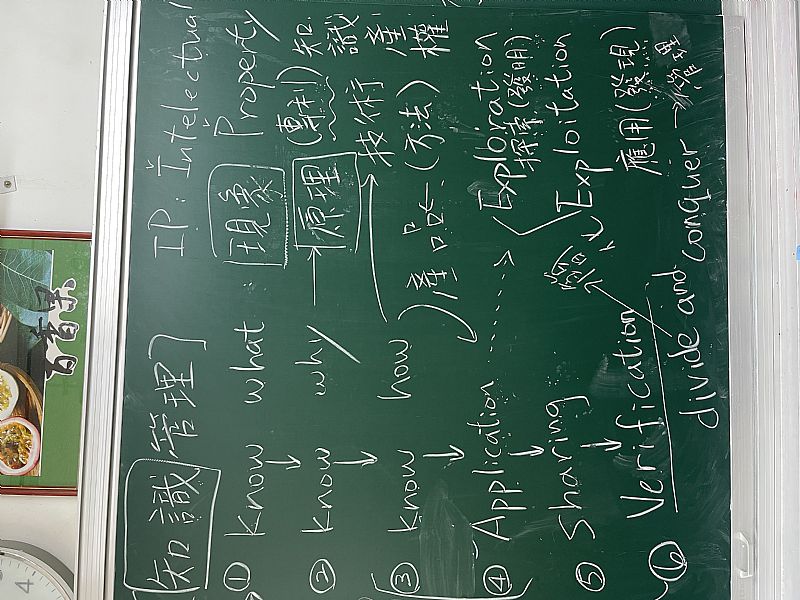 知識管理 IP: Intelectual
Property
① know what: 現象 (專利) 知識產權
② know why → 原理 技術
③ know how 產品 (方法)
④ Application Exploration
探索(發明)
⑤ Sharing Exploitation
應用(發現)
⑥ Verification
divide and conquer → 管理
百香果
4